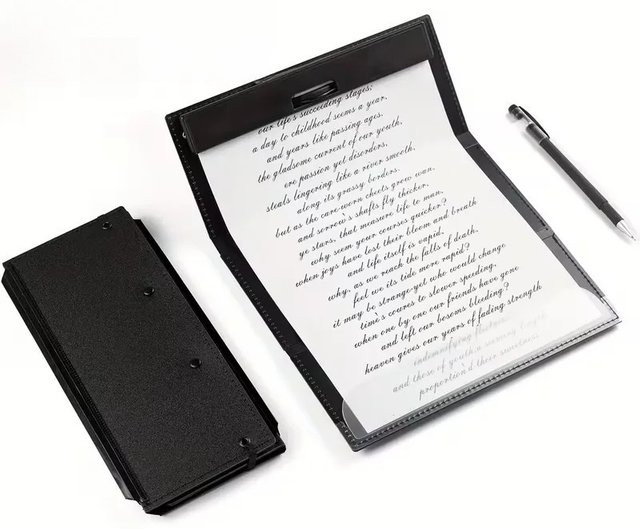 our life's succeeding stages:
a day to childhood seems a year,
and years like passing ages.
the gladsome current of our youth,
ere passion yet disorders,
steals lingering like a river smooth.
along its grassy borders.
but as the care-worn cheeks grow wan,
and sorrow's shafts fly thicker,
ye stars, that measure life to man,
why seem your courses quicker?
when joys have lost their bloom and breath
and life itself is vapid,
why, as we reach the falls of death,
feel we its tide more rapid?
it may be strange-yet who would change
time's coures to slower speeding,
when one by one our friends have gone
and left our bosoms bleeding?
heaven gives our years of fading strength
indemnifying
and those of youth a seeming
proportion'd their sweetness.